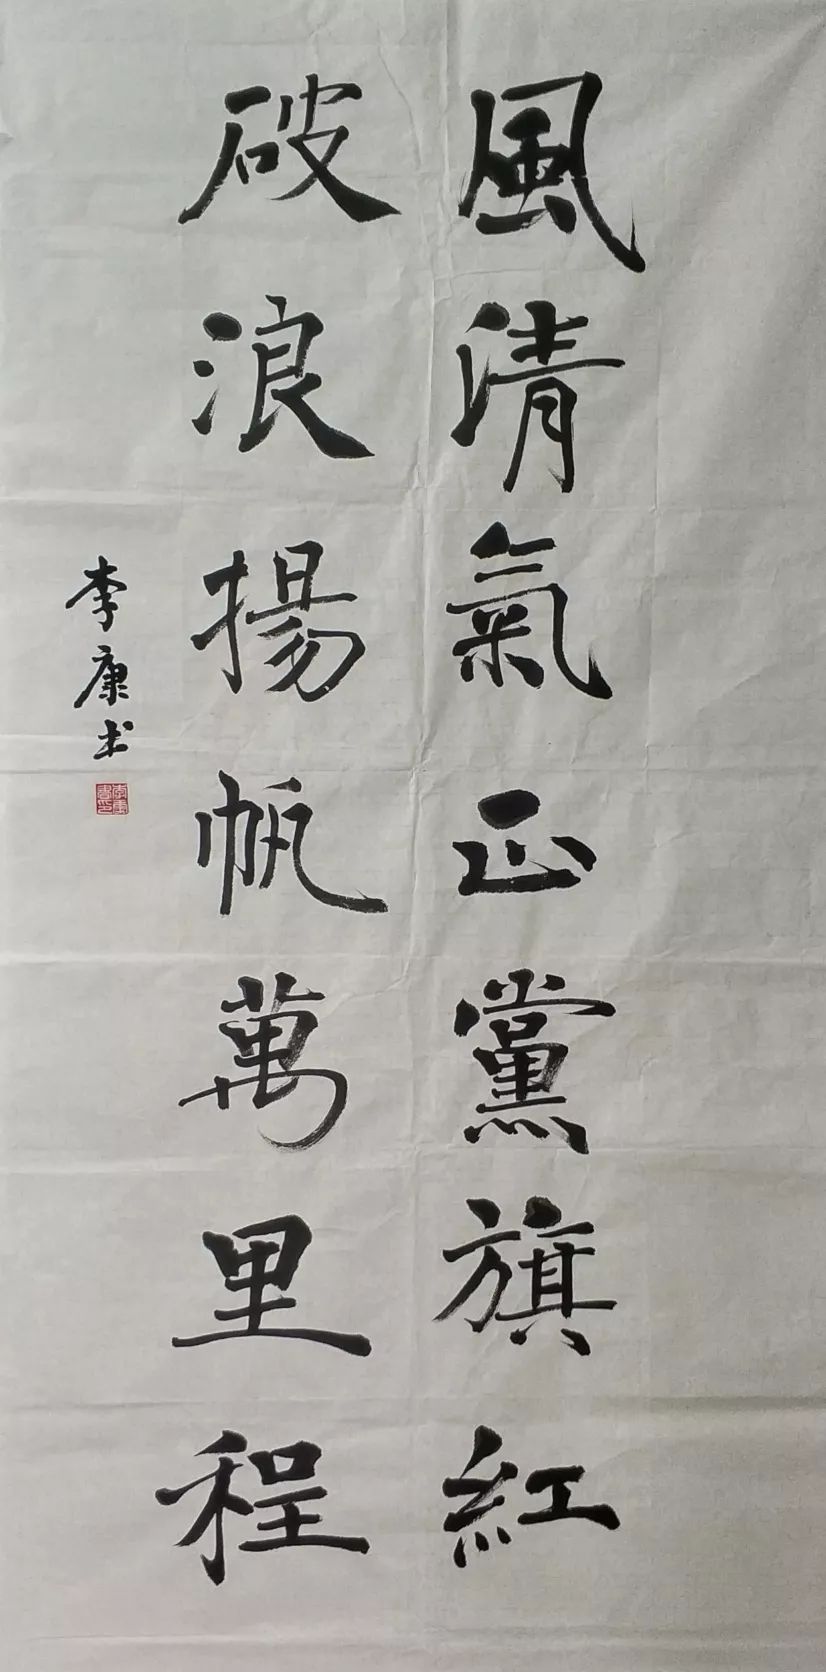 風清氣正黨旗紅
破浪揚帆萬里程
李康书